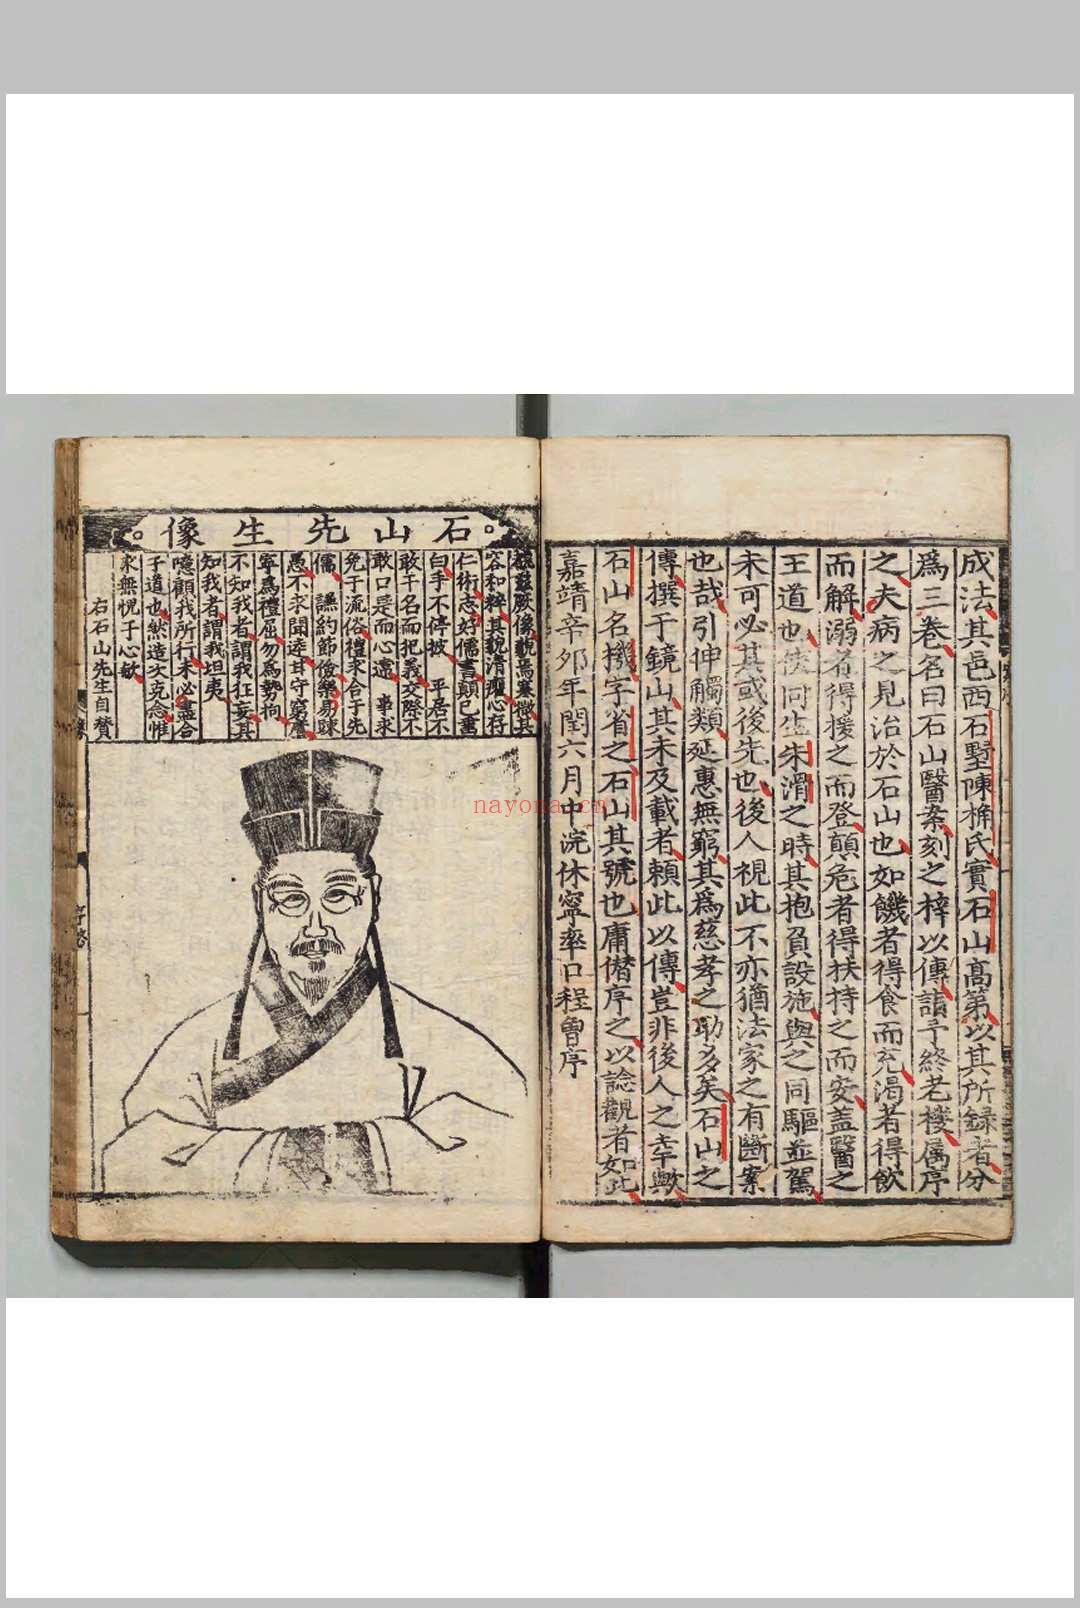 成法其邑西石墅陳桷氏實石山高第以其所録者分
爲三卷名曰石山醫案刻之梓以傳詣予終老樓属序
之夫病之見治於石山也如饑者得食而充渴者得飲
而解溺者得援之而登顛危者得扶持之而安盖醫之
王道也使同生朱滑之時其抱負設施與之同驅並駕
未可必其或後先也後人視此不亦猶法家之有斷案
也哉引伸觸類延惠無窮其爲慈孝之助多矣石山之
傳撰于鏡山其未及載者賴此以傳豈非後人之幸歟
石山名機字省之石山其號也庸僣序之以諗觀者如此
嘉靖辛夘年閏六月中浣休寧率口程曾序
石山先生像
茲厥像貌焉寒微其
容和粹其貌清癯心存
仁術志好儒書顛已垂
白手不停披 平居不
敢干名而犯義交際不
敢口是而心違 事求
免于流俗禮求合于先
儒 謙約節儉樂易踈
愚不求聞逹甘守窮廬
寧爲禮屈勿爲勢拘
不知我者謂我狂妄其
知我者謂我坦夷
噫顧我所行未必盡合
于道也然造次克念惟
求無愧于心歟
右石山先生自賛
nayona.cn